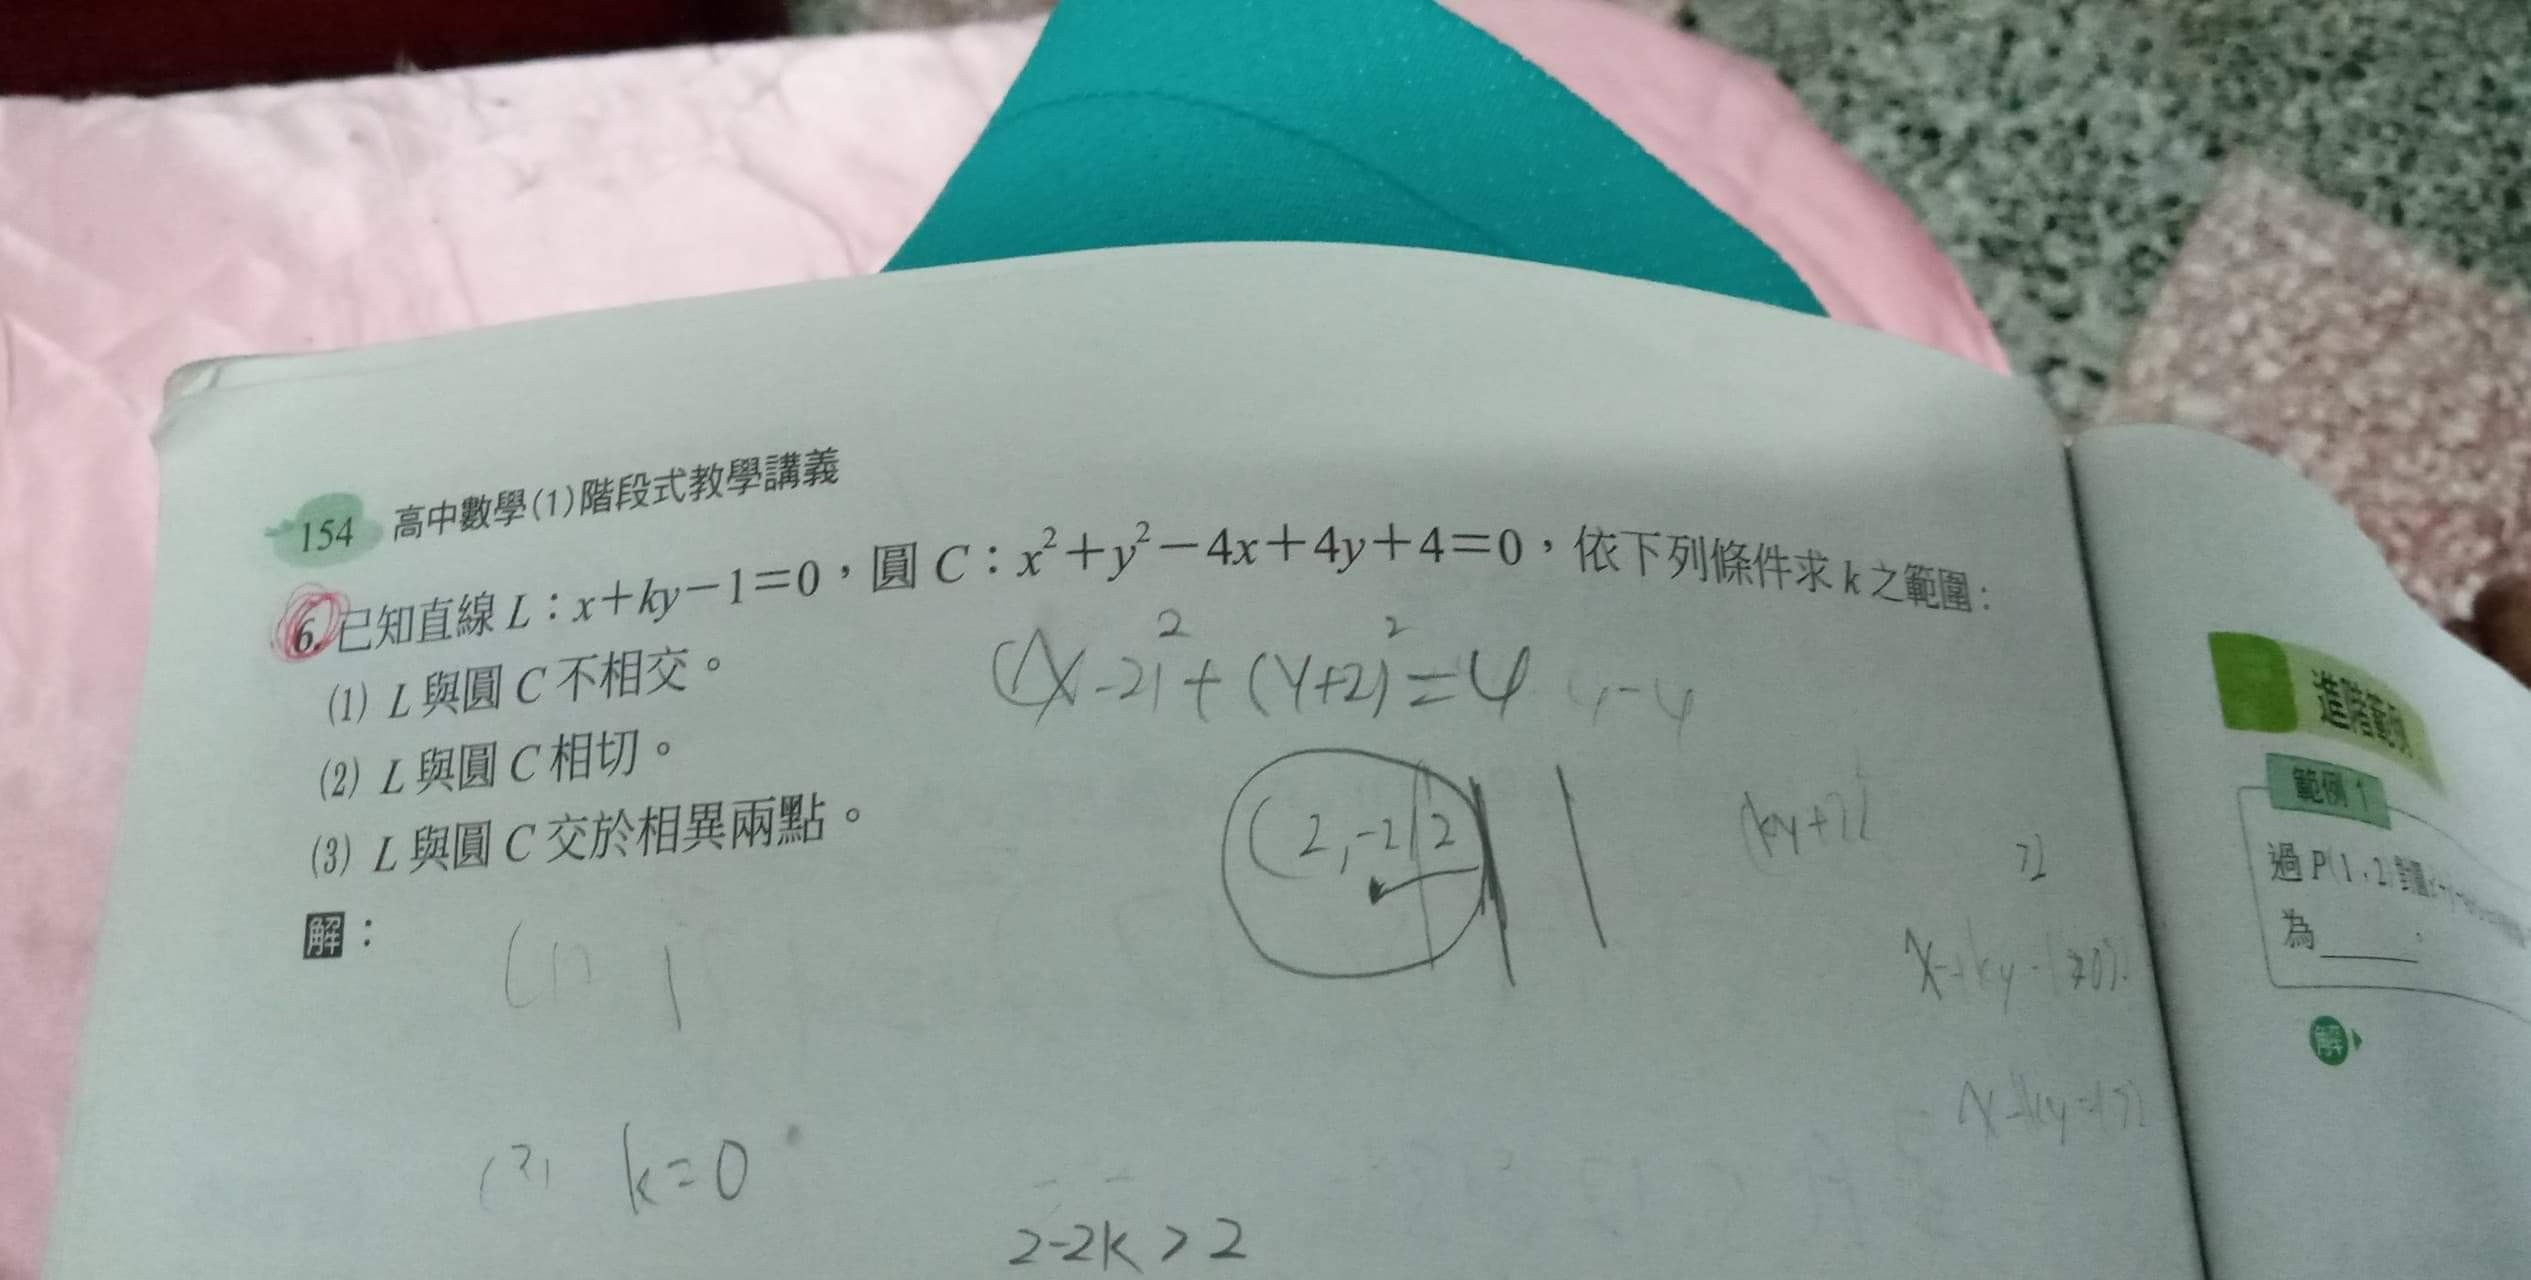 154 高中數學(1)階段式教學講義
6. 已知直線 L：x＋ky－1＝0，圓 C：x²＋y²－4x＋4y＋4＝0，依下列條件求 k 之範圍：
(1) L 與圓 C 不相交。
(2) L 與圓 C 相切。
(3) L 與圓 C 交於相異兩點。
解：
(x-2)²+(y+2)²=4
4-4
(2,-2) 2
(1)
k=0
2-2k>2
範例 1
過 P(1，2)
為
解